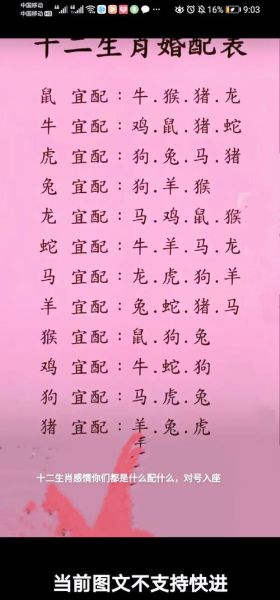 中国移动
中国移动 HD
16% 9:03
十二生肖婚配表
鼠 宜配：牛.猴.猪.龙
牛 宜配：鸡.鼠.猪.蛇
虎 宜配：狗.兔.马.猪
兔 宜配：狗.羊.猴
龙 宜配：马.鸡.鼠.猴
蛇 宜配：牛.羊.马.龙
马 宜配：龙.虎.狗.羊
羊 宜配：兔.蛇.猪.马
猴 宜配：鼠.狗.兔
鸡 宜配：牛.蛇.狗
狗 宜配：马.虎.兔
猪 宜配：羊.兔.虎
十二生肖感情你们都是什么配什么，对号入座
当前图文不支持快进